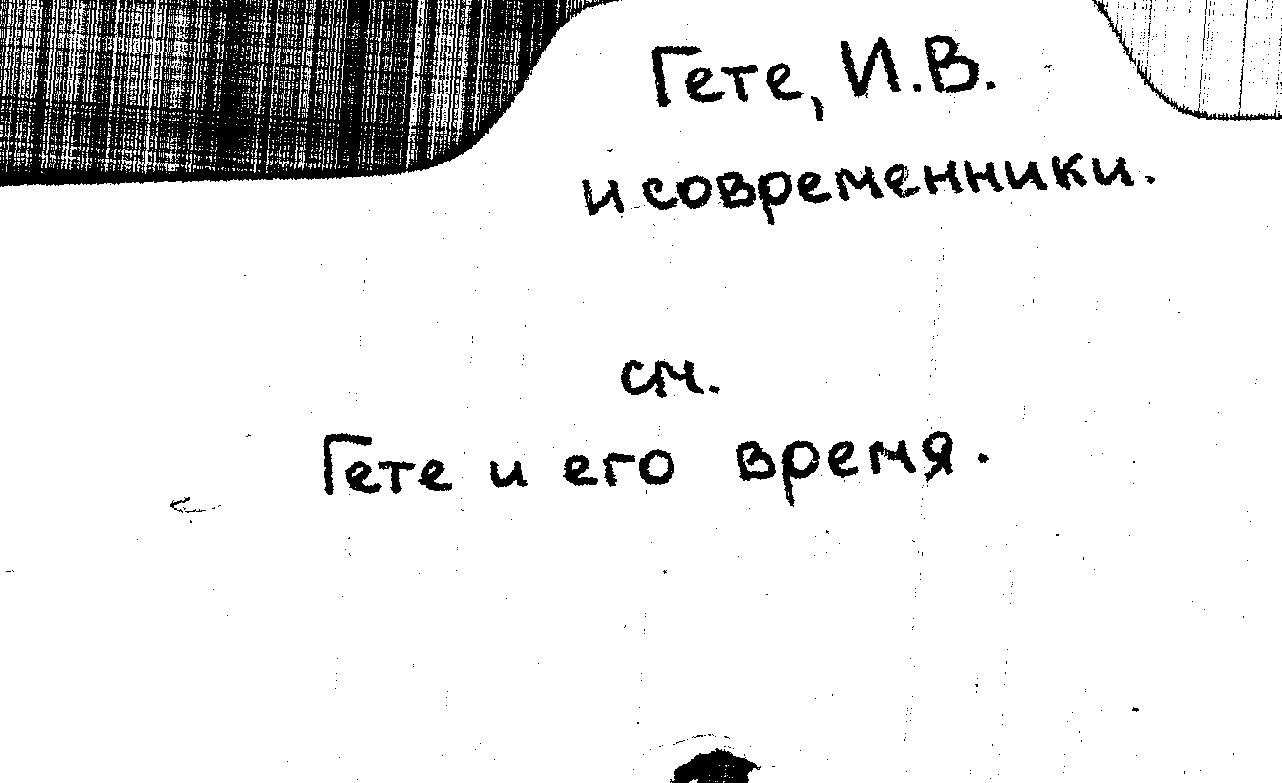 Гете, И.В.
и современники.
см.
Гете и его время.